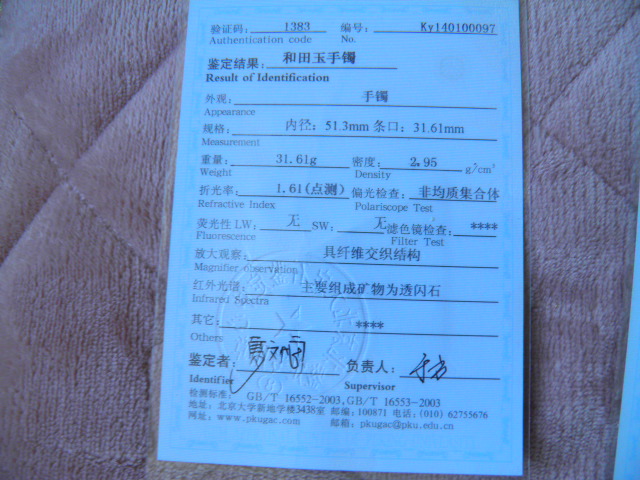 验证码： 1383 编号： Ky140100097
Authentication code No.
鉴定结果： 和田玉手镯
Result of Identification
外观： 手镯
Appearance
规格： 内径：51.3mm 条口：31.61mm
Measurement
重量： 31.61g 密度： 2.95 g/cm³
Weight Density
折光率： 1.61(点测) 偏光检查： 非均质集合体
Refractive Index Polariscope Test
荧光性 LW： 无 SW： 无 滤色镜检查： ****
Fluorescence Filter Test
放大观察： 具纤维交织结构
Magnifier observation
红外光谱： 主要组成矿物为透闪石
Infrared Spectra
其它： ****
Others
鉴定者： 负责人：
Identifier Supervisor
检测标准： GB/T 16552-2003,GB/T 16553-2003
地址：北京大学新地学楼3438室 邮编：100871 电话：(010) 62755676
网址：www.pkugac.com 邮箱：pkugac@pku.edu.cn